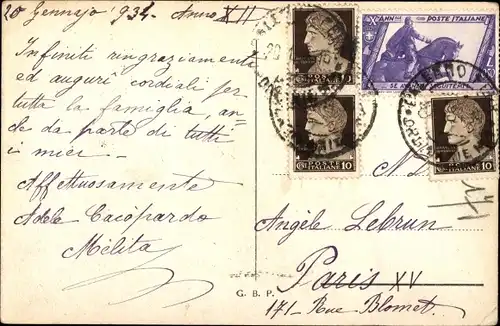 20 Gennajo 934. Anno XII
Infiniti ringraziamenti
ed auguri cordiali per
tutta la famiglia, an-
che da parte di tutti
i miei
Affettuosamente
Adele Caiopardo
Melita
G. B. P.
X ANN. POSTE ITALIANE
POSTE
ITALIANE 10
POSTE
ITALIANE 10
N.
Angèle Lebrun
Paris XV
171 - Rue Blomet.